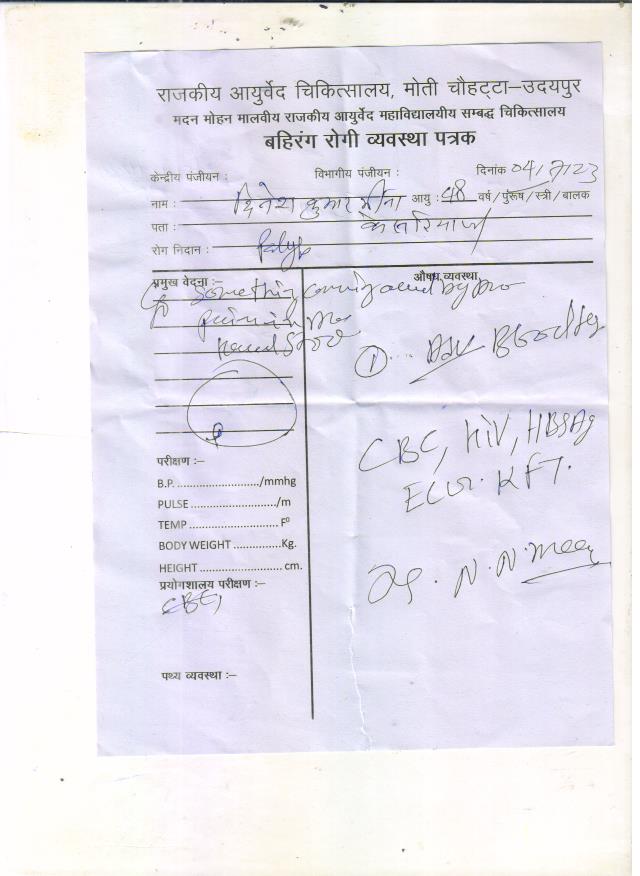 राजकीय आयुर्वेद चिकित्सालय, मोती चौहट्टा–उदयपुर
मदन मोहन मालवीय राजकीय आयुर्वेद महाविद्यालयीय सम्बद्ध चिकित्सालय
बहिरंग रोगी व्यवस्था पत्रक
केन्द्रीय पंजीयन : विभागीय पंजीयन : दिनांक 04/7/23
नाम : दिनेश कुमार मीना आयु : 48 वर्ष/पुरूष/स्त्री/बालक
पता : केसरियाजी
रोग निदान : Polyp
प्रमुख वेदना:– औषध व्यवस्था
C/o Something coming
pain in
① Adv Blood
CBC, HIV, HBSAg
परीक्षण :–
B.P. ........................./mmhg
ECG. KFT.
PULSE ........................./m
TEMP ........................... F⁰
BODY WEIGHT ..............Kg.
HEIGHT ......................... cm.
Dr. N. N. Meen
प्रयोगशालय परीक्षण :–
CBC,
पथ्य व्यवस्था :–